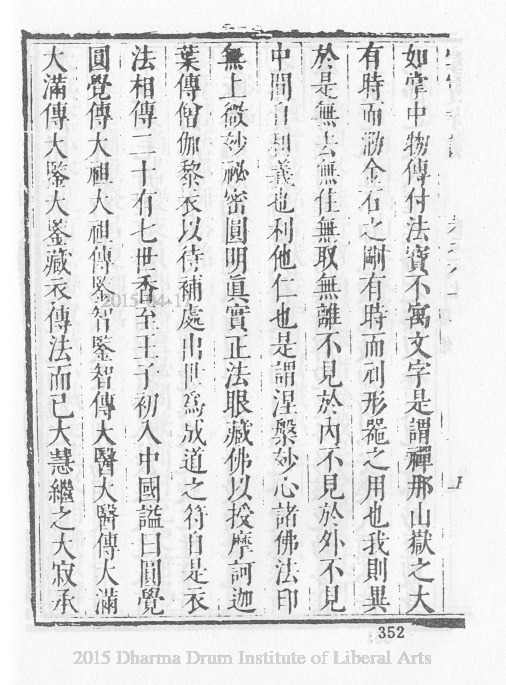 如掌中物傳付法寶不寓文字是謂禪那山嶽之大
有時而泐金石之剛有時而刓形器之用也我則異
於是無去無住無取無離不見於內不見於外不見
中間自利義也利他仁也是謂涅槃妙心諸佛法印
無上微妙祕密圓明眞實正法眼藏佛以授摩訶迦
葉傳僧伽黎衣以待補處出世爲成道之符自是衣
法相傳二十有七世香至王子初入中國諡曰圓覺
圓覺傳大祖大祖傳鑒智鑒智傳大醫大醫傳大滿
大滿傳大鑒大鑒藏衣傳法而已大慧繼之大寂承
352
2015-04-1
2015 Dharma Drum Institute of Liberal Arts